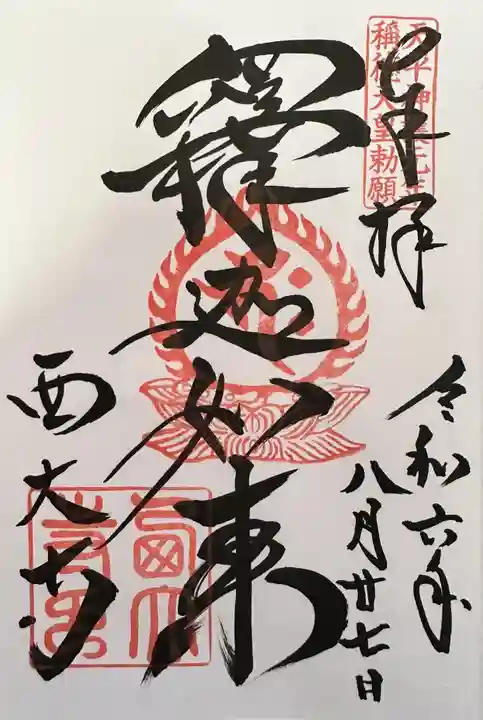 天平神護元年
稱徳天皇勅願
奉拝
令和六年
八月廿七日
釋迦如来
西大寺